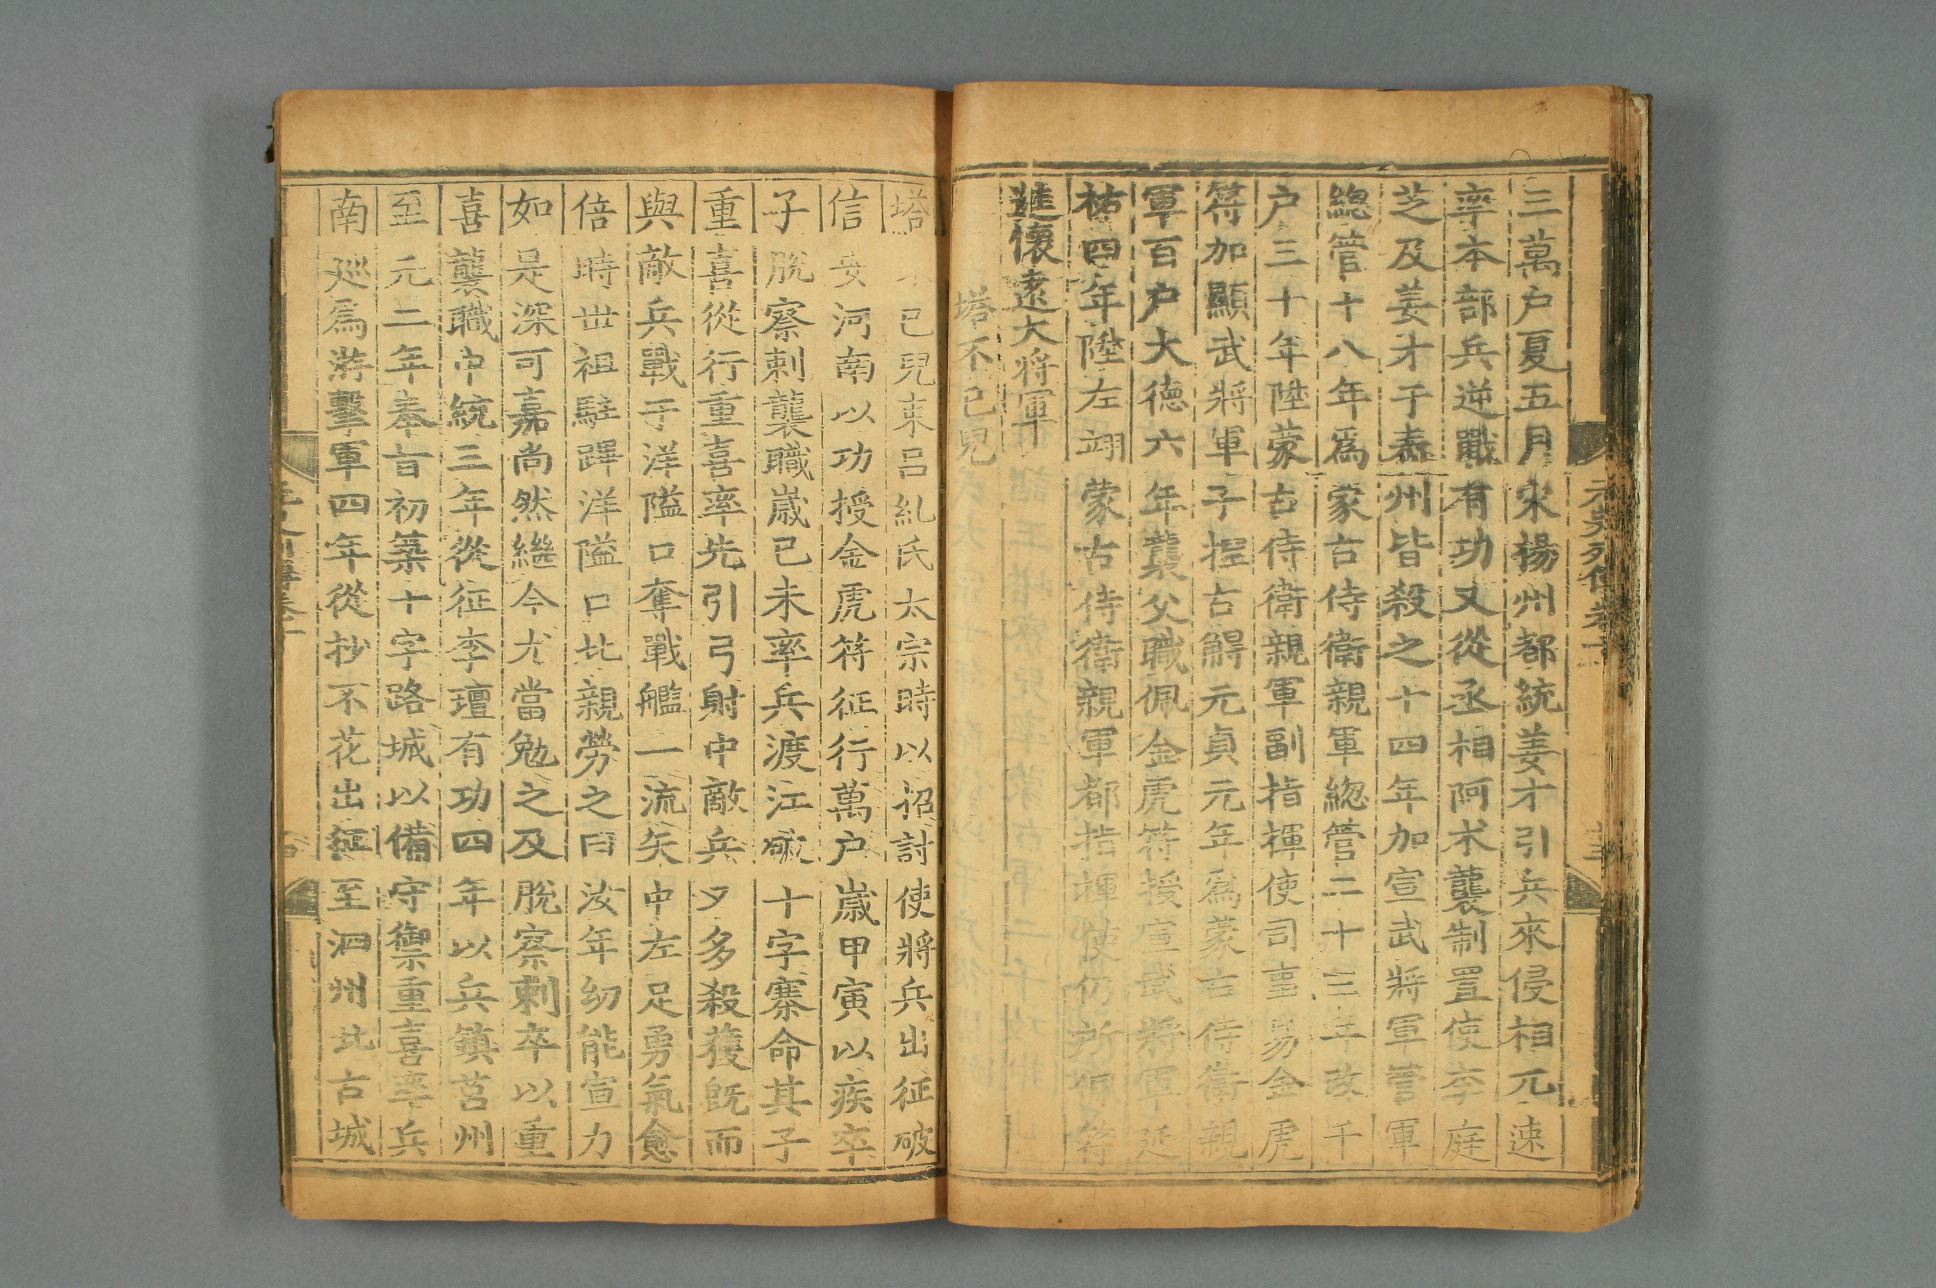 三萬户夏五月宋揚州都統姜才引兵來侵相兀速
率本部兵逆戰有功又從丞相阿术襲制置使李庭
芝及姜才于泰州皆殺之十四年加宣武將軍管軍
總管十八年爲蒙古侍衛親軍總管二十三年改千
户三十年陞蒙古侍衛親軍副指揮使司事易金虎
符加顯武將軍子捏古䚟元貞元年爲蒙古侍衛親
軍百户大德六年襲父職佩金虎符授宣武將軍延
祐四年陞左翊蒙古侍衛親軍都指揮使仍所佩符
筵懷逺大將軍
塔不已兒
塔不已兒束呂糺氏太宗時以招討使將兵出征破
信安河南以功授金虎符征行萬户歲甲寅以疾卒
子脫察剌襲職歲已未率兵渡江破十字寨命其子
重喜從行重喜率先引弓射中敵兵夕多殺獲旣而
與敵兵戰于洋隘口奪戰艦一流矢中左足勇氣愈
倍時丗祖駐蹕洋隘口北親勞之曰汝年幼能宣力
如是深可嘉尚然繼今尤當勉之及脫察剌卒以重
喜襲職中統三年從征李璮有功四年以兵鎮莒州
至元二年奉旨初築十字路城以備守禦重喜率兵
南巡爲游擊軍四年從抄不花出征至泗州北古城
元史列傳卷十